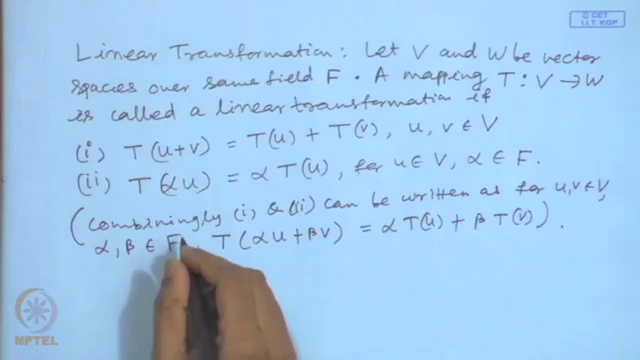 © CET
I.I.T. KGP
Linear Transformation: Let V and W be vector
spaces over same field F. A mapping T: V → W
is called a linear transformation if
(i) T(u+v) = T(u) + T(v), u, v ∈ V
(ii) T(αu) = α T(u), for u ∈ V, α ∈ F.
(Combiningly (i) & (ii) can be written as for u, v ∈ V,
α, β ∈ F, T(αu + βv) = α T(u) + β T(v)).
NPTEL